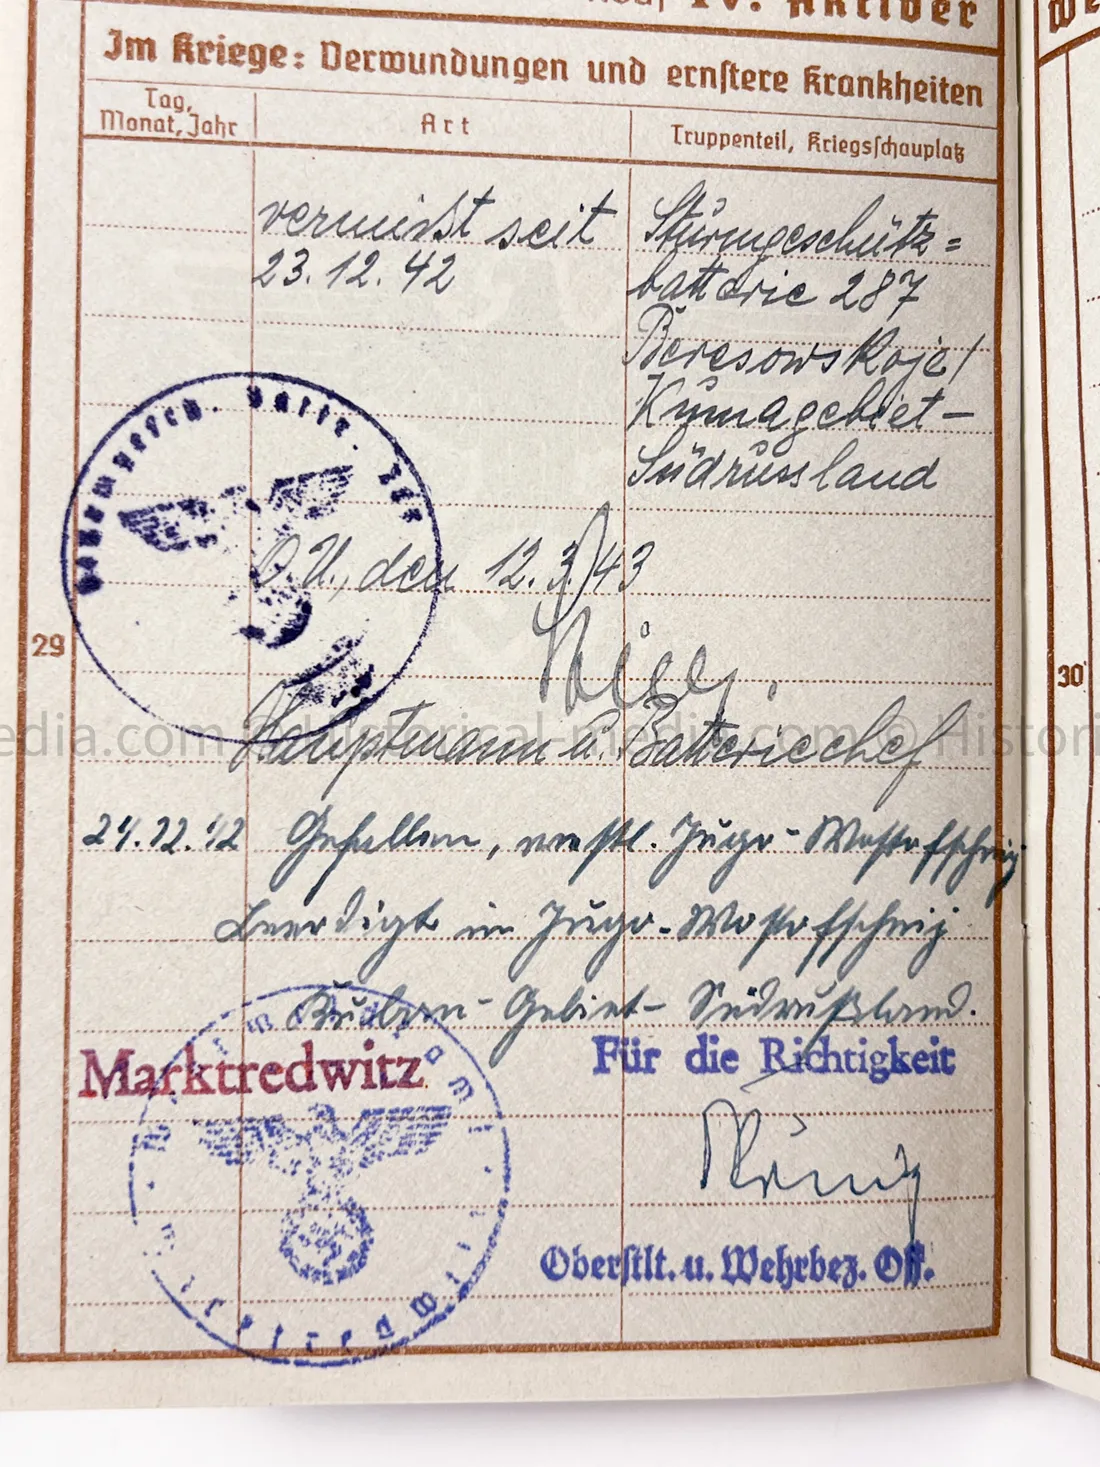 IV. Aktiver
Im Kriege: Verwundungen und ernstere Krankheiten
Tag, Monat, Jahr
Art
Truppenteil, Kriegsschauplatz
vermißt seit
23.12.42
Sturmgeschütz=
batterie 287
Beresowskoje/
Kumagebiet-
Südrussland
O.U., den 12.3.43
Hauptmann u. Batteriechef
29
30
Gefallen, westl. Jugo-Wostofschnij
Beerdigt in Jugo-Wostofschnij
Kuban-Gebiet-Südrußland.
Marktredwitz
Für die Richtigkeit
Oberstlt. u. Wehrbez. Off.
edia.com © Historical-media.com © Histori